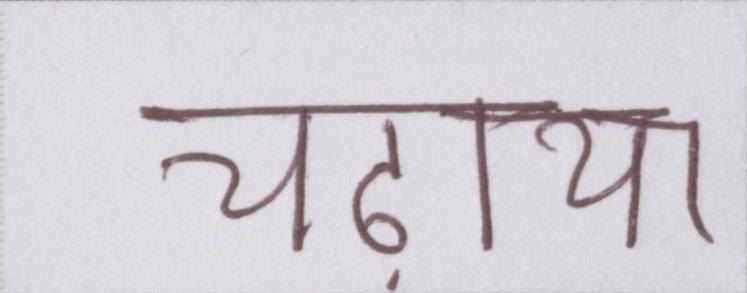 चढ़ाया